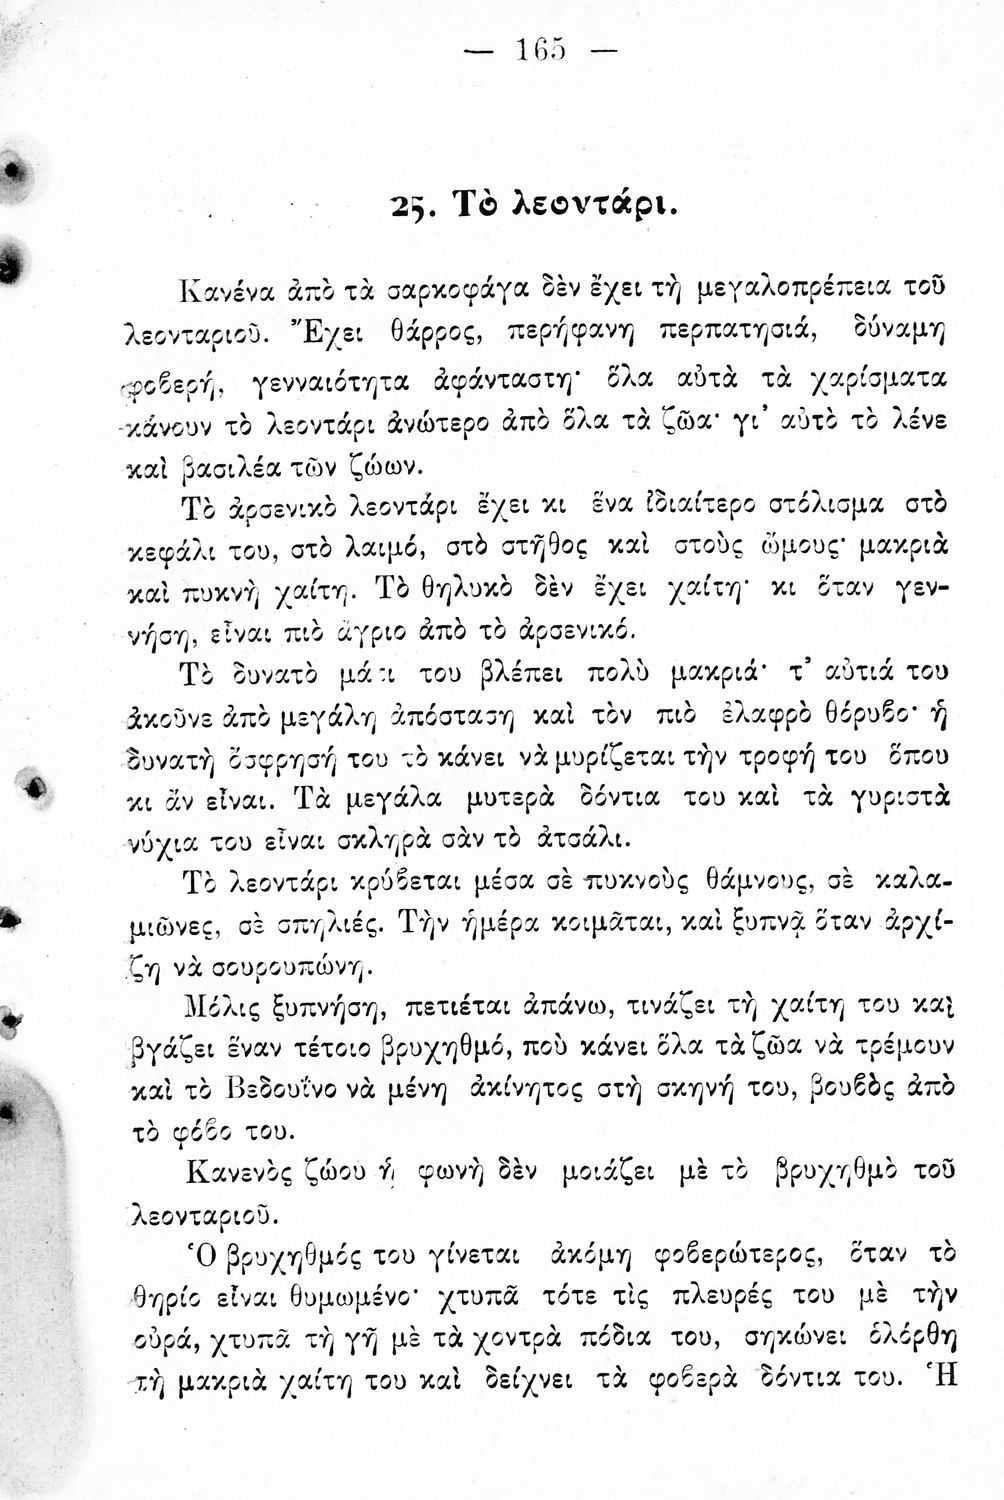 — 165 —
25. Τὸ λεοντάρι.
Κανένα ἀπὸ τὰ σαρκοφάγα δὲν ἔχει τὴ μεγαλοπρέπεια τοῦ
λεονταριοῦ. Ἔχει θάρρος, περήφανη περπατησιά, δύναμη
φοβερή, γενναιότητα ἀφάνταστη· ὅλα αὐτὰ τὰ χαρίσματα
κάνουν τὸ λεοντάρι ἀνώτερο ἀπὸ ὅλα τὰ ζῶα· γι’ αὐτὸ τὸ λένε
καὶ βασιλέα τῶν ζώων.
Τὸ ἀρσενικὸ λεοντάρι ἔχει κι ἕνα ἰδιαίτερο στόλισμα στὸ
κεφάλι του, στὸ λαιμό, στὸ στῆθος καὶ στοὺς ὤμους· μακριὰ
καὶ πυκνὴ χαίτη. Τὸ θηλυκὸ δὲν ἔχει χαίτη· κι ὅταν γεν-
νήση, εἶναι πιὸ ἄγριο ἀπὸ τὸ ἀρσενικό.
Τὸ δυνατὸ μάτι του βλέπει πολὺ μακριά· τ’ αὐτιά του
ἀκοῦνε ἀπὸ μεγάλη ἀπόσταση καὶ τὸν πιὸ ἐλαφρὸ θόρυβο· ἡ
δυνατὴ ὄσφρησή του τὸ κάνει νὰ μυρίζεται τὴν τροφή του ὅπου
κι ἂν εἶναι. Τὰ μεγάλα μυτερὰ δόντια του καὶ τὰ γυριστὰ
νύχια του εἶναι σκληρὰ σὰν τὸ ἀτσάλι.
Τὸ λεοντάρι κρύβεται μέσα σὲ πυκνοὺς θάμνους, σὲ καλα-
μιῶνες, σὲ σπηλιές. Τὴν ἡμέρα κοιμᾶται, καὶ ξυπνᾷ ὅταν ἀρχί-
ζη νὰ σουρουπώνη.
Μόλις ξυπνήση, πετιέται ἀπάνω, τινάζει τὴ χαίτη του καὶ
βγάζει ἕναν τέτοιο βρυχηθμό, ποὺ κάνει ὅλα τὰ ζῶα νὰ τρέμουν
καὶ τὸ Βεδουῖνο νὰ μένη ἀκίνητος στὴ σκηνή του, βουβὸς ἀπὸ
τὸ φόβο του.
Κανενὸς ζώου ἡ φωνὴ δὲν μοιάζει μὲ τὸ βρυχηθμὸ τοῦ
λεονταριοῦ.
Ὁ βρυχηθμός του γίνεται ἀκόμη φοβερώτερος, ὅταν τὸ
θηρίο εἶναι θυμωμένο· χτυπᾶ τότε τὶς πλευρές του μὲ τὴν
οὐρά, χτυπᾶ τὴ γῆ μὲ τὰ χοντρὰ πόδια του, σηκώνει ὁλόρθη
τὴ μακριὰ χαίτη του καὶ δείχνει τὰ φοβερὰ δόντια του. Ἡ